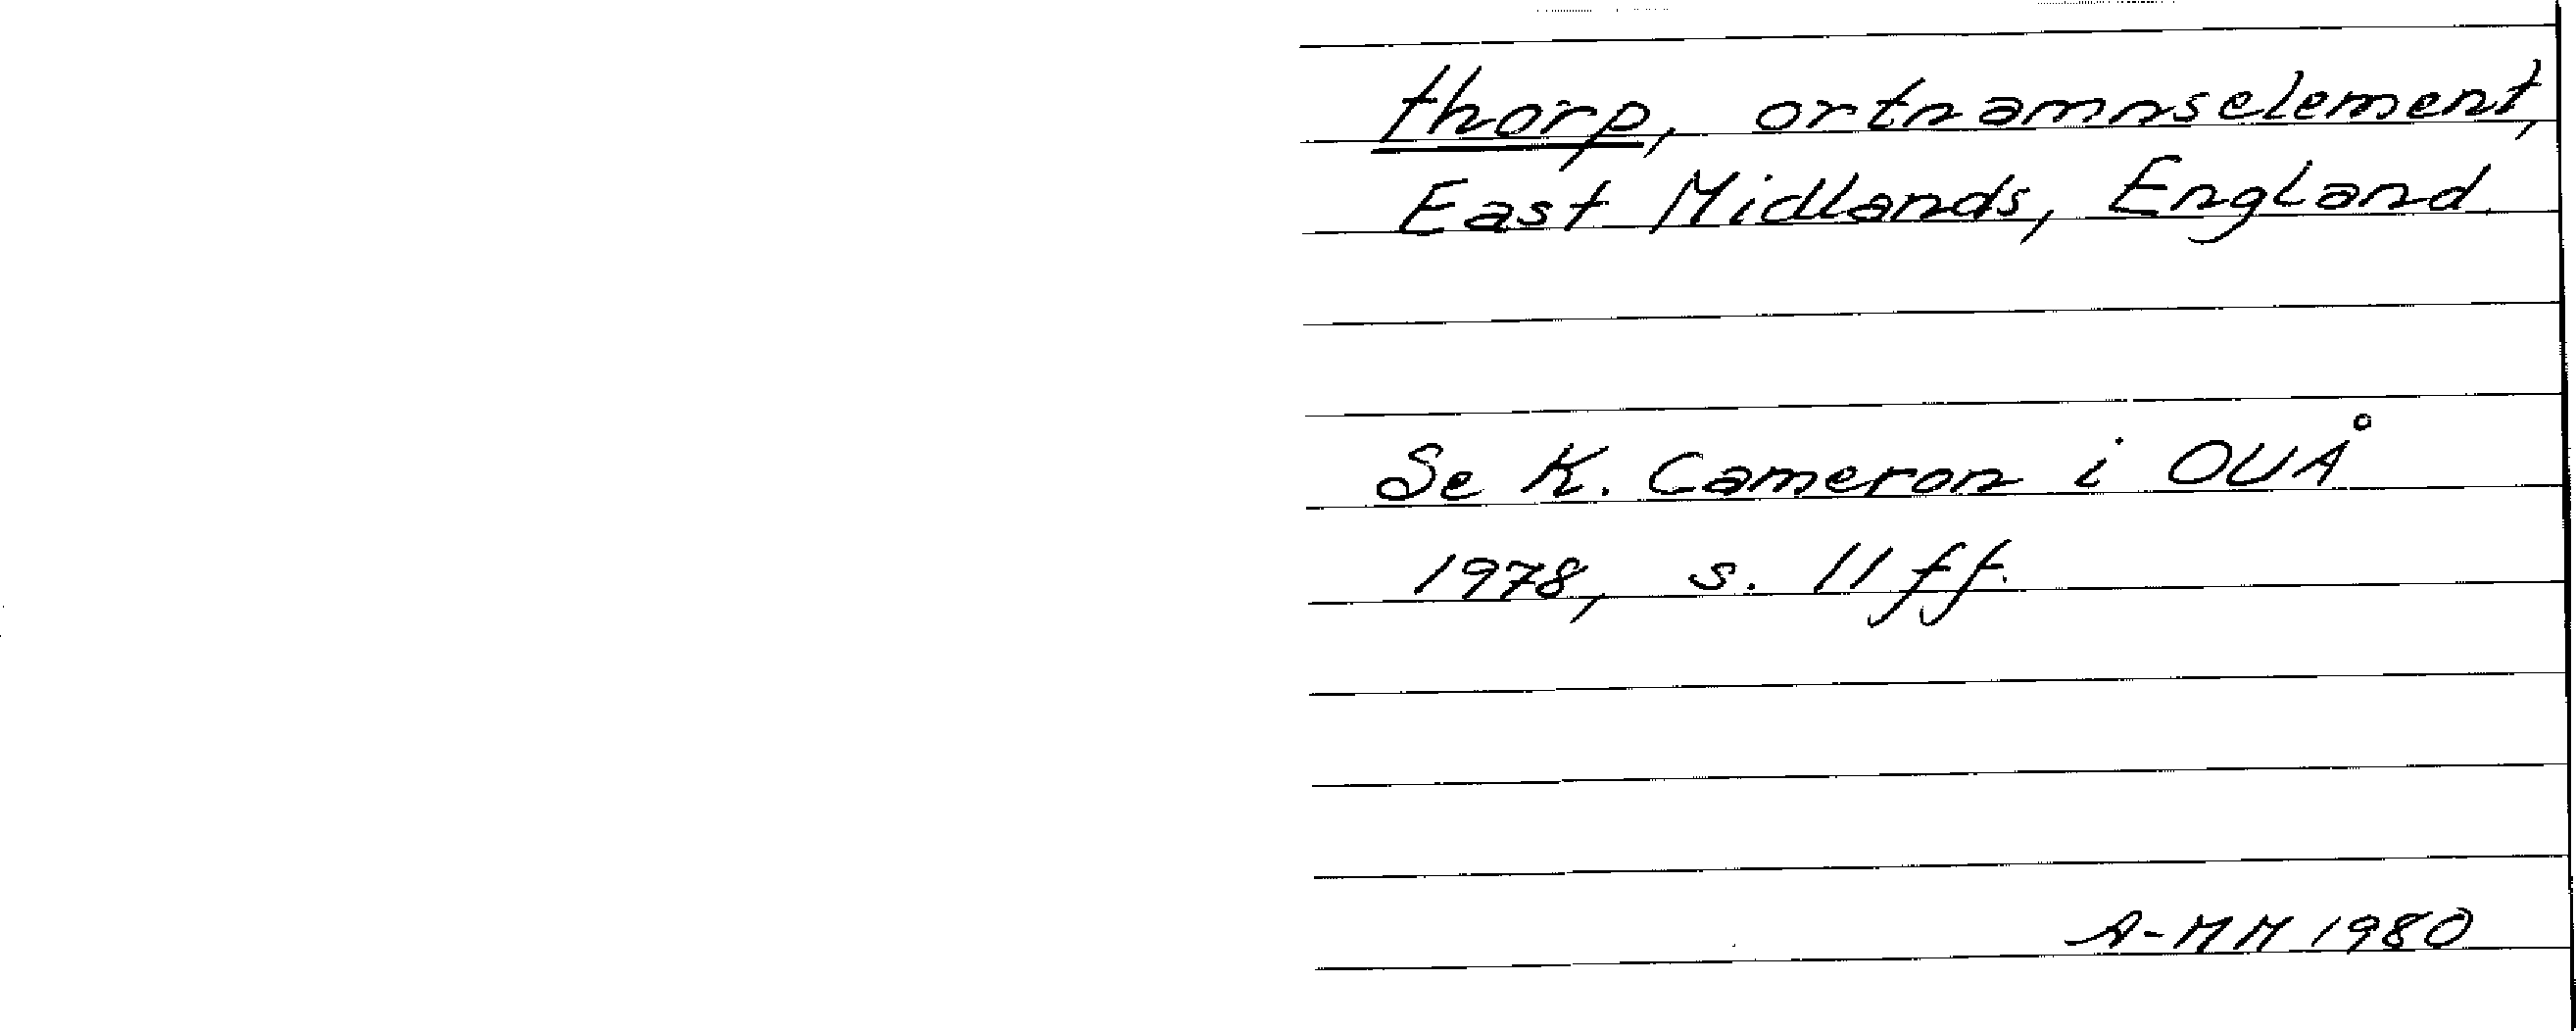 thorp, ortnamnselement,
East Midlands, England.
Se K. Cameron i OUÅ
1978, s. 11 ff.
A-MM 1980